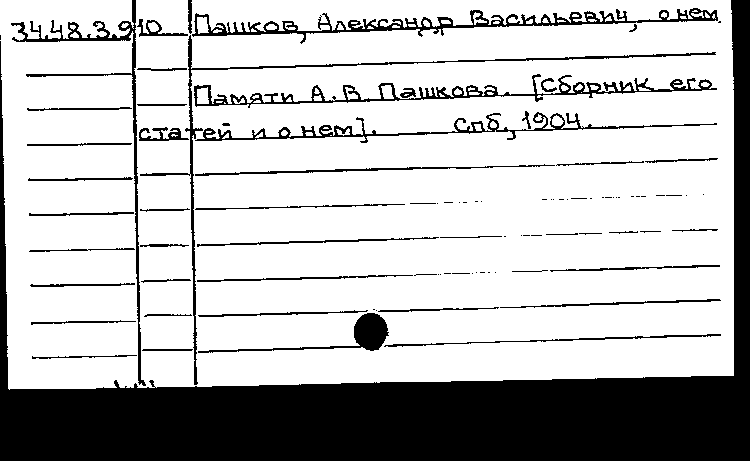 34.48.3.910 Пашков, Александр Васильевич, о нем
Памяти А.В. Пашкова. [Сборник его
статей и о нем]. Спб., 1904.